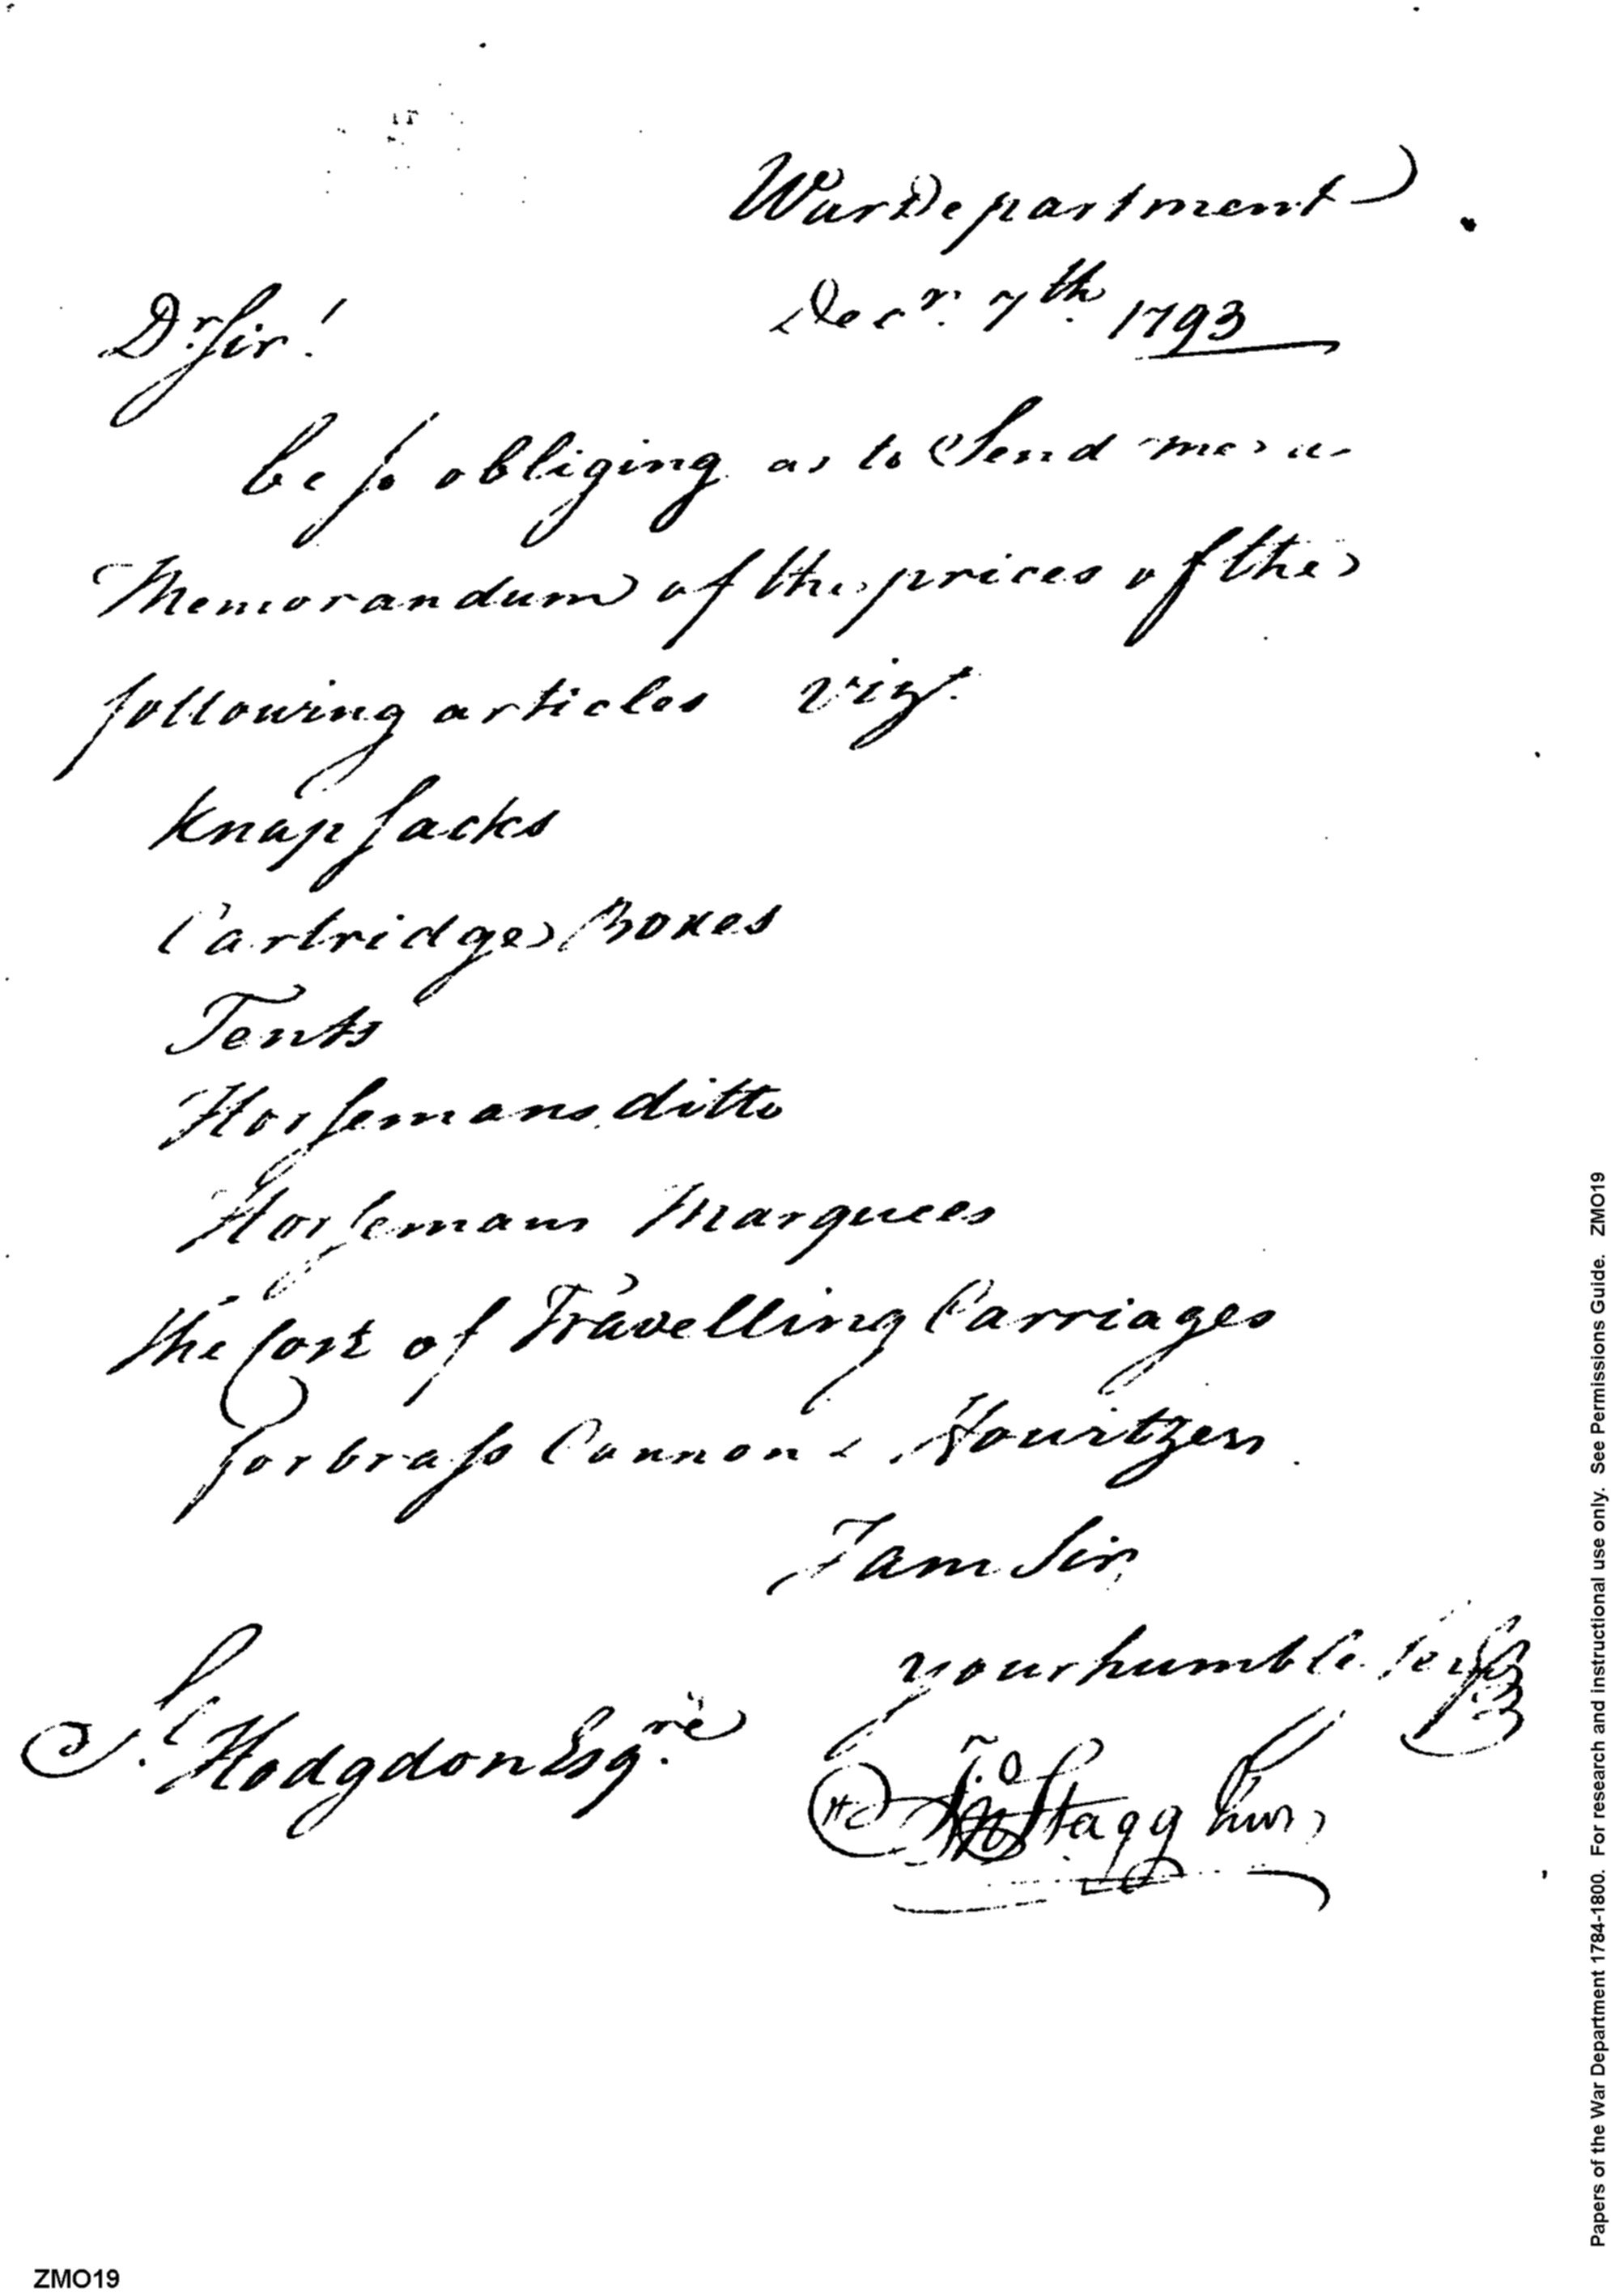 War Department
Decr. 7th. 1793
Dr. Sir!
be so obliging as to Send me a
Memorandum of the prices of the
following articles Vizt.
Knapsacks
Cartridge Boxes
Tents
Horsemans ditto
Horsemans Marquees
the Cost of Travelling Carriages
for brass Cannon & Howitzers.
I am Sir,
your humble Servt
S. Hodgdon Esqre.
Jno Stagg Junr
Papers of the War Department 1784-1800. For research and instructional use only. See Permissions Guide. ZMO19
ZMO19